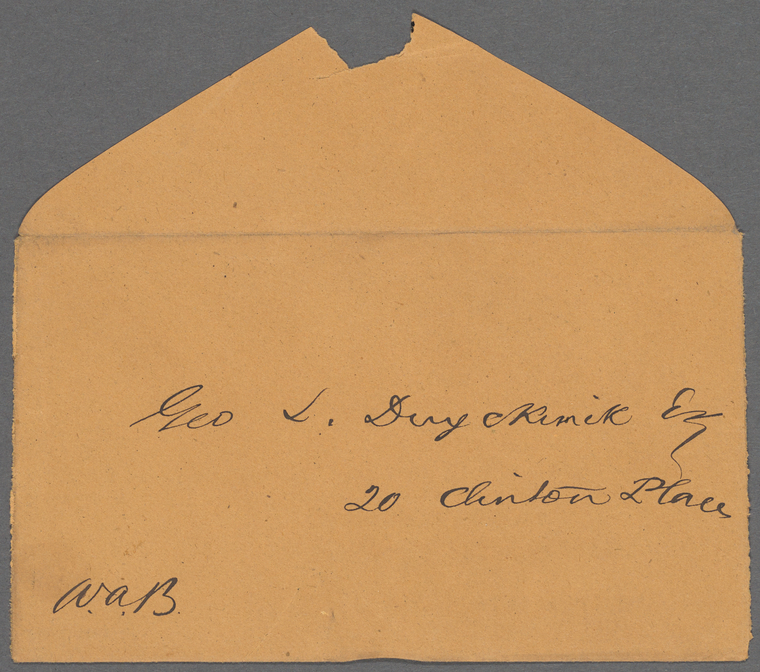 Geo L. Duyckinik Esq
20 Clinton Place
W.A.B.